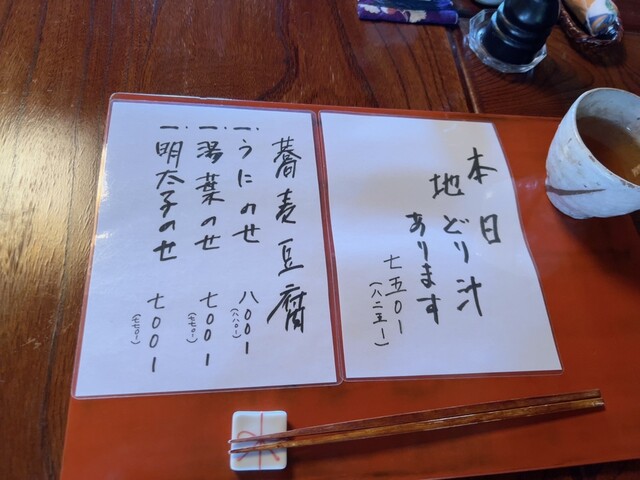 本日
地どり汁
あります
七五〇ー
(八二五ー)
蕎麦豆腐
一、うにのせ 八〇〇ー
(八八〇ー)
一、湯葉のせ 七〇〇ー
(七七〇ー)
一、明太子のせ 七〇〇ー
(七七〇ー)